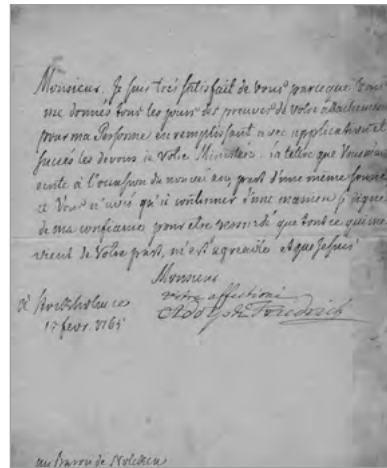 Monsieur. Je suis très satisfait de Vous parceque Vous
me donnés tous les jours des preuves de Votre attachement
pour ma Personne en remplissant avec application et
succés les devoirs de Votre Ministère. la lettre que Vous
à l'occasion du nouvel an, part d'une même source
et Vous n'avés qu'à continuer d'une maniere si digne
de ma confiance pour etre que tout ce qui me
vient de Votre part, m'est agreable et que je suis
Monsieur
votre affectioné
Adolph Friedrich
à Stockholm ce
17 fevr. 1765
au Baron de Nolcken